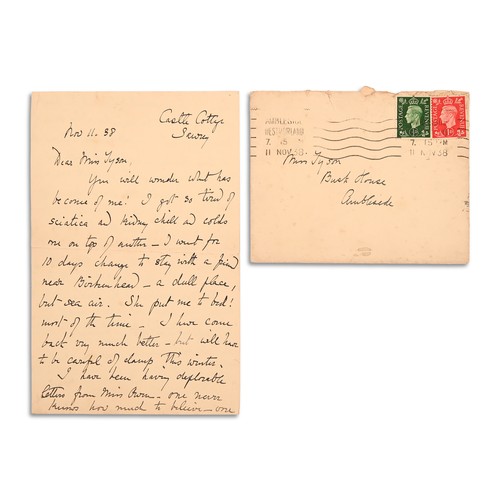 Castle Cottge
Sawrey
Nov 11. 38
Dear Miss Tyson.
You will wonder what has
become of me! I got so tired of
sciatica and kidney chill and colds
one on top of another – I went for
10 days change to stay with a friend
near Birkenhead – a dull place,
but sea air. She put me to bed!
most of the time – I have come
back very much better – but will have
to be careful of damp this winter.
I have been having deplorable
letters from Miss Owen – one never
knows how much to believe – one
WESTMORLAND
7. 15 PM
11 NOV 38
7. 15 PM
11 NOV 38
POSTAGE
POSTAGE
Miss Tyson
Bush House
Ambleside